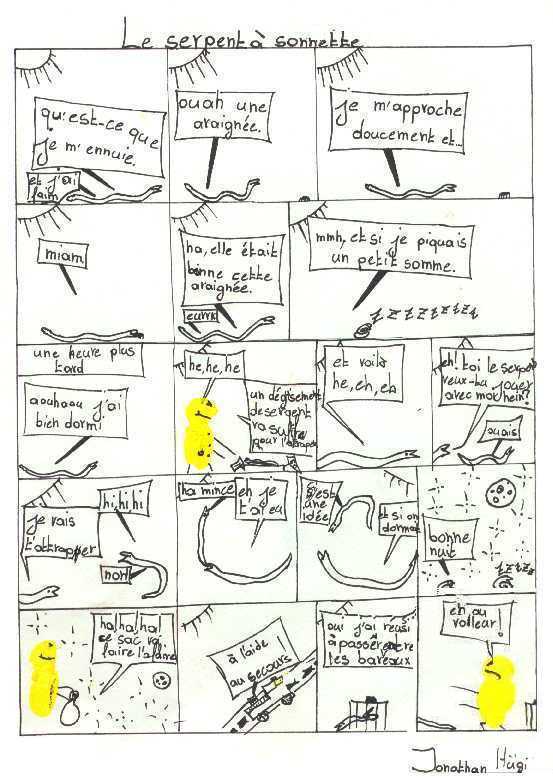 Le serpent à sonnette
qu'est-ce que
je m'ennuie.
et j'ai
faim
ouah une
araignée.
je m'approche
doucement et...
miam
ha, elle était
bonne cette
araignée.
eurrk
mmh, et si je piquais
un petit somme.
zzzzzzzz
une heure plus
tard
aouhaou j'ai
bien dormi
he, he, he
un dégisement
de serpent
va suffire
pour l'attraper
et voilà
he, eh, eh
eh! toi le serpent
veux-tu jouer
avec moi hein?
ouais
je vais
t'attrapper
hi, hi, hi
non
ha mince
eh je
t'ai eu
s'est
une
idée
et si on
dormait
bonne
nuit
zzzzz
ha, ha, ha!
ce sac va
faire l'affaire
à l'aide
au secours!
oui j'ai réusi
à passer entre
les bareaux
eh au
volleur!
Jonathan Hügi